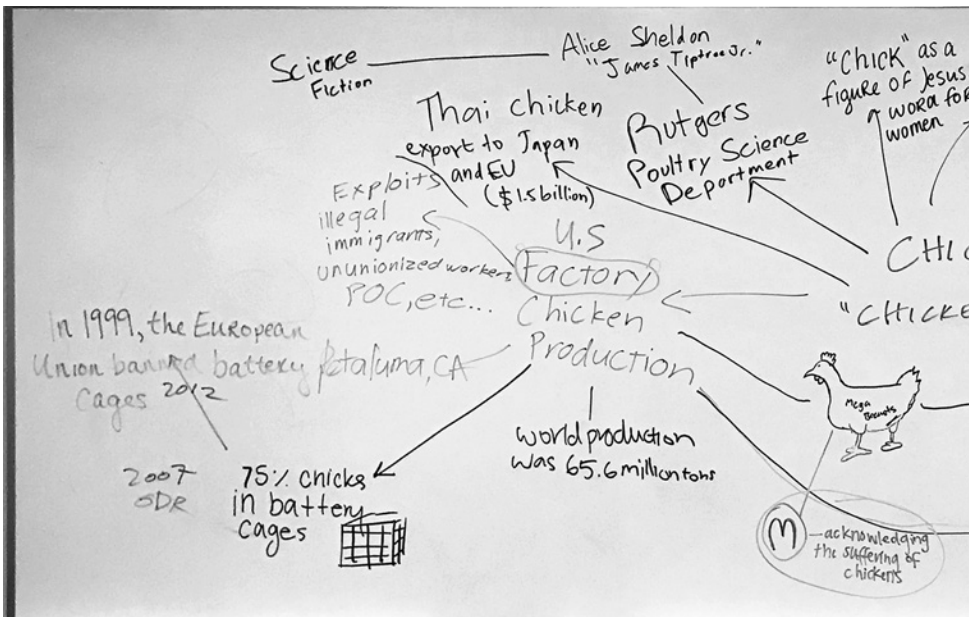 Science
Fiction
Alice Sheldon
"James Tiptree Jr."
"CHICK" as a
figure of Jesus
word for
women
Thai chicken
export to Japan
and EU
($1.5 billion)
Rutgers
Poultry Science
Department
Exploits
illegal
immigrants,
ununionized workers
POC, etc...
U.S
Factory
Chicken
Production
CHIC
"CHICKE
In 1999, the European
Union banned battery
cages 2012
Petaluma, CA
Mega
world production
was 65.6 million tons
2007
75% chicks
in battery
cages
M
acknowledging
the suffering of
chickens